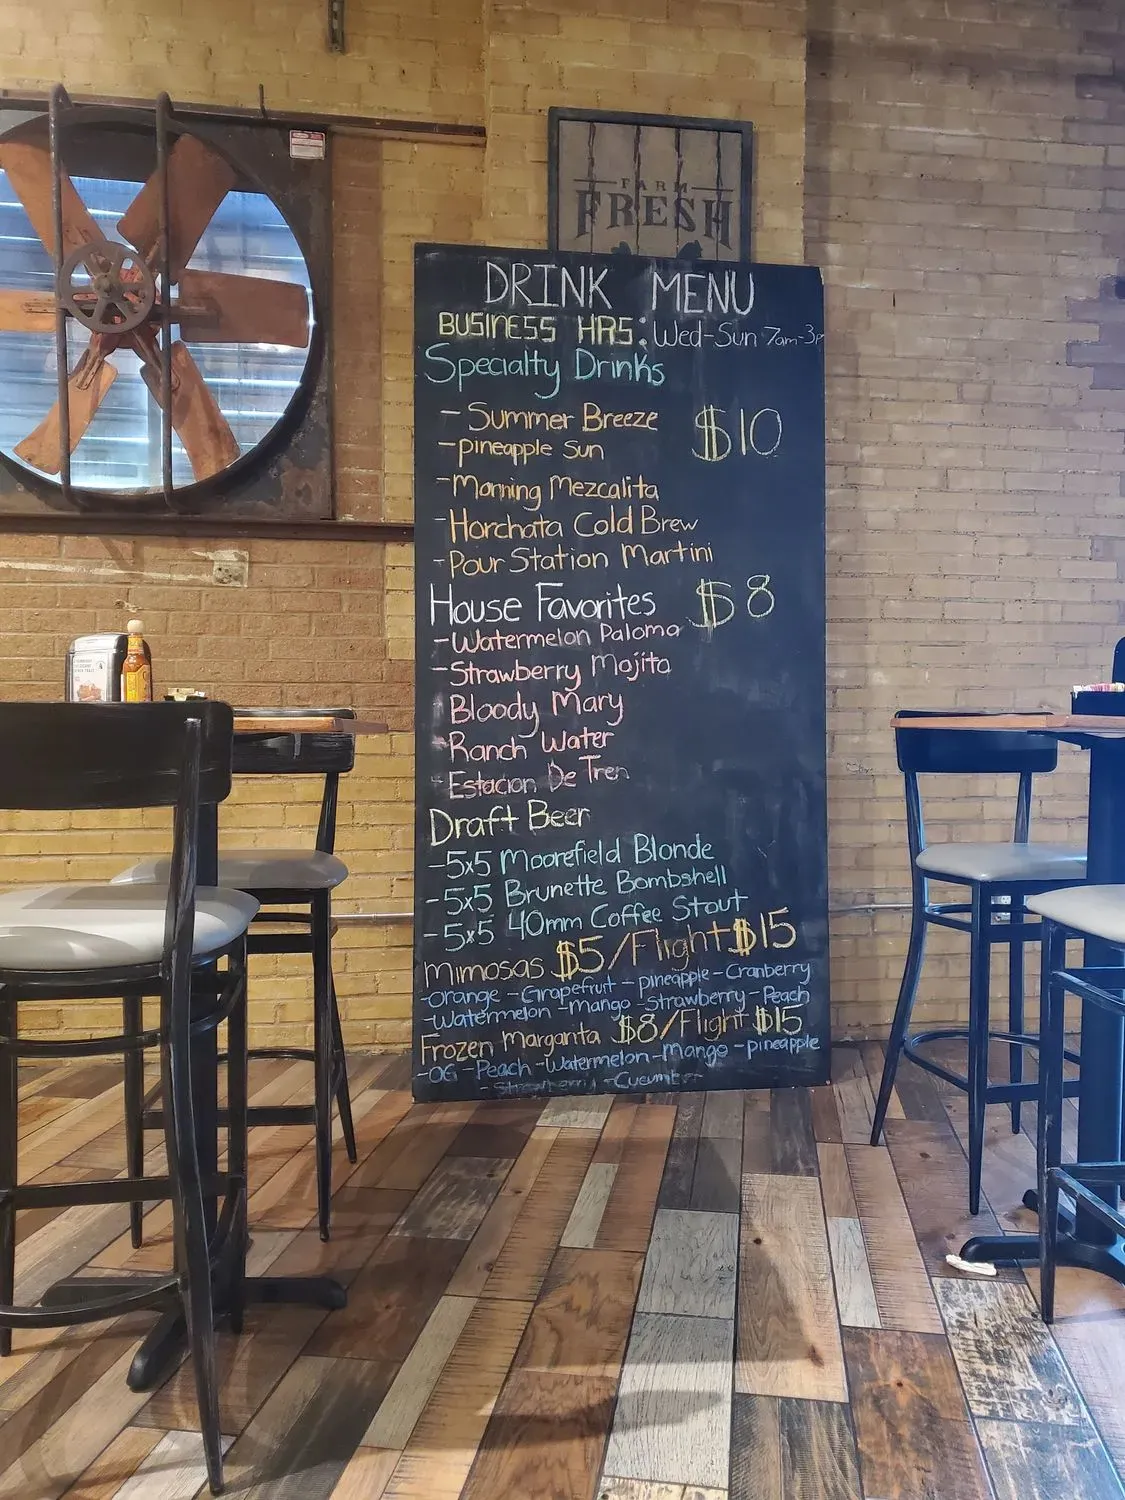 FARM
FRESH
DRINK MENU
BUSINESS HRS: Wed-Sun 7am-3p
Specialty Drinks
- Summer Breeze $10
- pineapple Sun
- Morning Mezcalita
- Horchata Cold Brew
- Pour Station Martini
House Favorites $8
- Watermelon Paloma
- Strawberry Mojito
Bloody Mary
- Ranch Water
- Estacion De Tren
Draft Beer
- 5x5 Moorefield Blonde
- 5x5 Brunette Bombshell
- 5x5 40mm Coffee Stout
Mimosas $5/Flight $15
- Orange - Grapefruit - pineapple - Cranberry
- Watermelon - mango - Strawberry - Peach
Frozen Margarita $8/Flight $15
- OG - Peach - Watermelon - Mango - pineapple
- Strawberry - Cucumber